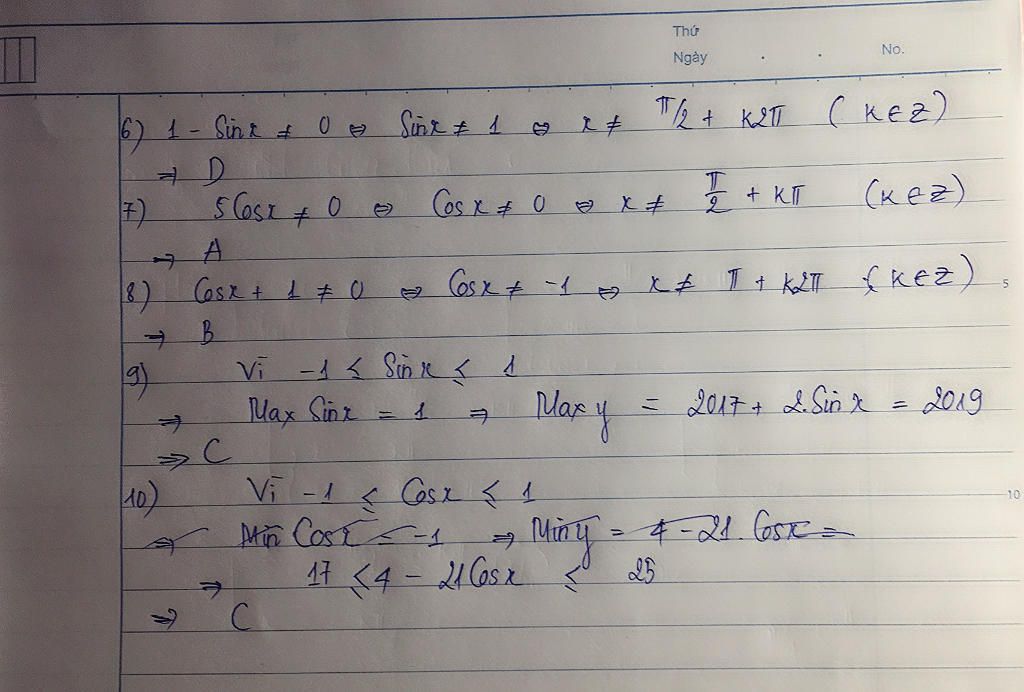 Thứ
Ngày . . No.
6) 1 - Sin x ≠ 0 ⇔ Sin x ≠ 1 ⇔ x ≠ π/2 + k2π ( k ∈ Z )
⇒ D
7) 5 Cos x ≠ 0 ⇔ Cos x ≠ 0 ⇔ x ≠ π/2 + kπ (k ∈ Z)
→ A
8) Cos x + 1 ≠ 0 ⇔ Cos x ≠ -1 ⇔ x ≠ π + k2π (k ∈ Z) 5
⇒ B
9) Vì -1 ≤ Sin x ≤ 1
⇒ Max Sin x = 1 ⇒ Max y = 2017 + 2.Sin x = 2019
⇒ C
10) Vì -1 ≤ Cos x ≤ 1 10
⇒ Min Cos x = -1 ⇒ Min y = 4 - 21. Cos x =
⇒ 17 ≤ 4 - 21 Cos x ≤ 25
⇒ C